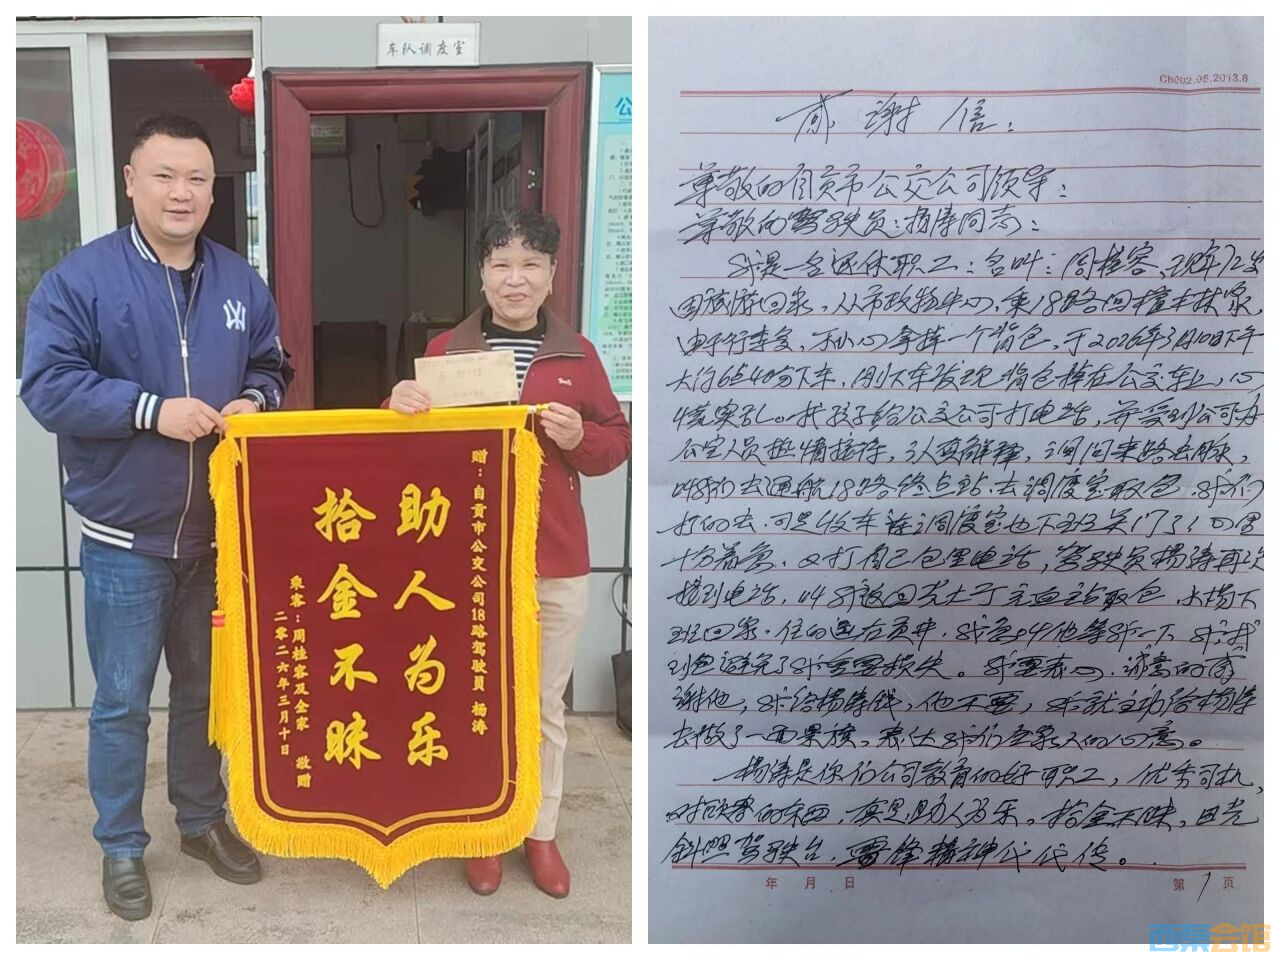 车队调度室
赠：自贡市公交公司18路驾驶员 杨涛
助人为乐
拾金不昧
乘客：周桂容及全家 敬赠
二零二六年三月十日
NY
公
Ch002.05.2013.8
感谢信：
尊敬的自贡市公交公司领导：
尊敬的驾驶员：杨涛同志：
我是一名退休职工：名叫：周桂容、现年72岁
因旅游回家，从市政务中心，乘18路回檀木林家，
由于行李多，不小心拿掉一个背包，于2026年3月10日下午
大约6点40分下车，刚下车发现背包掉在公交车上，心
慌意乱。我孩子给公交公司打电话，并受到公司办
公室人员热情接待，认真解释，询问来路去脉，
叫我们去通航18路终点站、去调度室取包，我们
打的去，可是收车 调度室也下班关门了，心里
十分着急，又打自己包里电话，驾驶员杨涛再次
接到电话，叫我返回 取包，杨
班回家，住的 贡井，我 叫他等我一下，我
到包避免了我重要损失。我要衷心、诚意的感
谢他，我给杨涛钱，他不要，我就主动给杨涛
去做了一面果旗，表达我们全家人的心意。
杨涛是你们公司教育的好职工，优秀司机，
对顾客的东西，真是助人为乐，拾金不昧，
驾驶台，雷锋精神代代传。
年 月 日
第 1 页
西秦会馆